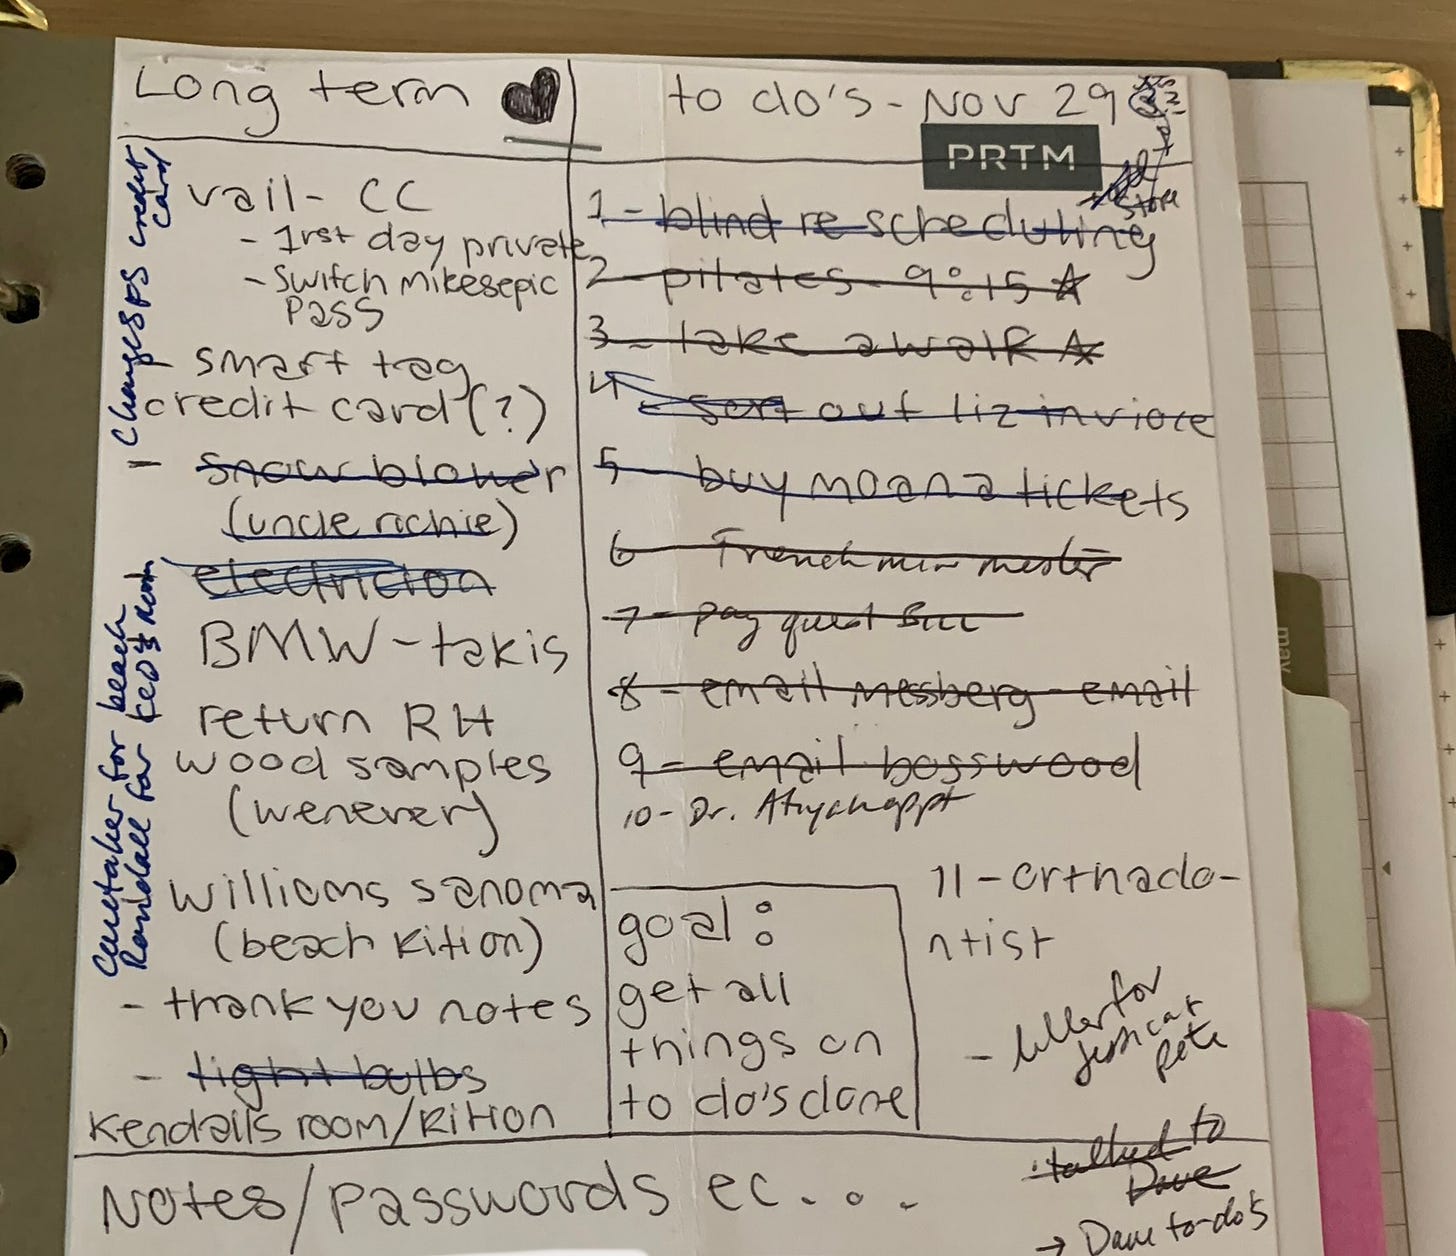 Long term
vail - CC
- 1rst day private
- switch mikes epic
pass
- smart tag
credit card (?)
- snow blower
(uncle richie)
electricion
BMW - takis
return RH
wood samples
(wenever)
williams sanoma
(beach kition)
- thank you notes
- light bulbs
Kendalls room/kition
Change SPS credit
card
Caretaker for beach
Randall for Ked's Room
to do's - Nov 29
PRTM
store
1 - blind rescheduling
2 - pilates - 9:15 ☆
3 - take a walk ☆
4 sort out liz inviorce
5 - buy moana tickets
6 - French
7 - pay quest bill
8 - email messberg - email
9 - email bosswood
10 - Dr. appt
11 - orthado-
ntist
goal:
get all
things on
to do's done
- for
Pete
talked to
Dave
→ Dave to-do's
Notes/passwords ec....
may